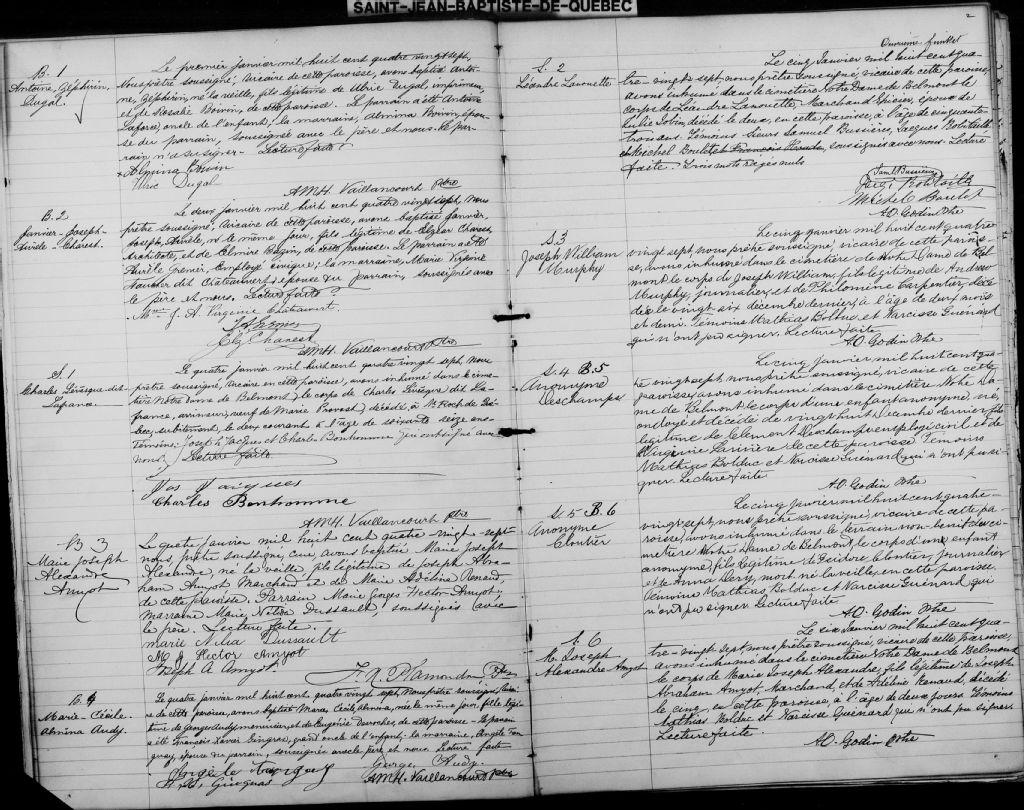 SAINT-JEAN-BAPTISTE-DE-QUEBEC
B. 1
Antoine, Géphirin,
Dugal.
Le premier janvier mil huit cent quatre vingt sept,
Nous prêtre soussigné, vicaire de cette paroisse, avons baptisé Antoi-
ne, Géphirin, né la veille, fils légitime de Ulric Dugal, imprimeur,
et de Rosalie Boivin, de cette paroisse. Le parrain a été Antoine
Laforce, oncle de l'enfant, la marraine, Almina Boivin, épou-
se du parrain, soussignée avec le père et nous. Le par-
rain n'a su signer. Lecture faite.
Almina Boivin
Ulric Dugal
AMH. Vaillancourt Ptre
B. 2
Janvier-Joseph-
Aurèle-Charest.
Le deux janvier mil huit cent quatre vingt sept, Nous
prêtre soussigné, vicaire de cette paroisse, avons baptisé Janvier,
Joseph, Aurèle, né le même jour, fils légitime de Elzéar Charest,
Architecte, et de Elmire Bazin, de cette paroisse. Le parrain a été
Aurèle Grenier, Employé civique; la marraine, Marie Virginie
dit Chateauvert, épouse du parrain, soussignés avec
le père et nous. Lecture faite.
Mme J. A. Virginie Chateauvert.
J A Grenier
Elz Charest
AMH. Vaillancourt Ptre
S. 1
Charles Lévêque dit
Lafrance
Le quatre janvier mil huit cent quatre vingt sept, Nous
prêtre soussigné, vicaire en cette paroisse, avons inhumé dans le cime-
tière Notre Dame de Belmont, le corps de Charles Lévêque dit La-
france, arrimeur, veuf de Marie Provost, décédé, à St Roch de Qué-
bec, subitement, le deux courant à l'âge de soixante seize ans.
Témoins: Joseph L. Jacques et Charles Bonhomme qui ont signé avec
nous. Lecture faite.
Charles Bonhomme
AMH. Vaillancourt Ptre
B 3
Marie Joseph
Alexandre
Amyot
Le quatre janvier mil huit cent quatre vingt-sept
nous, prêtre soussigné, curé, avons baptisé Marie Joseph
Alexandre, né la veille, fils légitime de Joseph Abra-
ham Amyot Marchand et de Marie Adélina Renaud,
de cette paroisse. Parrain Marie Georges Hector Amyot;
Marraine Marie Nélida Dussault, soussignés avec
le père. Lecture faite.
Marie Nélia Dussault
M G Hector Amyot
Joseph A Amyot
F. H. Plamondon Ptre
B. 4
Marie-Cécile-
Almina Audy.
Le quatre janvier mil huit cent quatre vingt sept, Nous prêtre soussigné, vicai-
re de cette paroisse, avons baptisé Marie, Cécile, Almina, née le même jour, fille légi-
time de Georges Audy, menuisier, et de Eugénie Durocher, de cette paroisse. Le parrain
a été François Xavier Gingras, grand oncle de l'enfant; la marraine, Angèle Tan-
guay, épouse du parrain, soussignés avec le père et nous. Lecture faite
Angèle Tanguay
George Audy.
F. X. Gingras
AMH. Vaillancourt Ptre
2
S. 2
Léandre Lanouette
Le cinq Janvier mil huit cent qua-
tre-vingt sept nous prêtre soussigné, vicaire de cette paroisse,
avons inhumé dans le cimetière Notre Dame de Belmont le
corps de Léandre Lanouette, Marchand Epicier, époux de
Julie Jobin décédé le deux, en cette paroisse, à l'âge de cinquante
trois ans. Témoins Sieurs Samuel Bussière, Jacques Robitaille
et Michel Boulet soussignés avec nous. Lecture
faite. Trois mots rayés nuls
Saml Bussière
Jacq. Robitaille
Michel Boulet
A.O. Godin Ptre
S. 3
Joseph William
Murphy
Le cinq janvier mil huit cent quatre
vingt sept, nous prêtre soussigné, vicaire de cette parois-
se, avons inhumé dans le cimetière de Notre Dame de Bel-
mont le corps de Joseph William, fils légitime de Andrew
Murphy, journalier, et de Philomène Carpentier, décé-
dé le vingt six décembre dernier, à l'âge de deux mois
et demi. Témoins Mathias Bolduc et Narcisse Guénard
qui n'ont pu signer. Lecture faite
A.O. Godin Ptre
S. 4 B. 5
Anonyme
Deschamps
Le cinq janvier mil huit cent qua-
tre vingt sept, nous prêtre soussigné, vicaire de cette
paroisse, avons inhumé dans le cimetière Notre Da-
me de Belmont le corps d'un enfant anonyme, né,
ondoyé et décédé le vingt huit Décembre dernier, fils
légitime de Clément Deschamps employé civil et de
Virginie Larivière de cette paroisse. Témoins
Mathias Bolduc et Narcisse Guénard qui n'ont pu si-
gner. Lecture faite
A.O. Godin Ptre
S. 5 B. 6
Anonyme
Cloutier
Le cinq janvier mil huit cent quatre-
vingt sept, nous prêtre soussigné, vicaire de cette pa-
roisse, avons inhumé dans le terrain non-bénit du ci-
metière Notre Dame de Belmont, le corps d'un enfant
anonyme, fils légitime de Cloutier, Journalier
et de Anna Dery, mort né la veille, en cette paroisse.
Témoins Mathias Bolduc et Narcisse Guénard qui
n'ont pu signer. Lecture faite
A.O. Godin Ptre
S. 6
M. Joseph
Alexandre Amyot
Le six Janvier mil huit cent qua-
tre-vingt sept nous prêtre soussigné, vicaire de cette paroisse,
avons inhumé dans le cimetière Notre Dame de Belmont
le corps de Marie Joseph Alexandre, fils légitime de Joseph
Abraham Amyot, Marchand, et de Adéline Renaud, décédé
le cinq, en cette paroisse, à l'âge de deux jours. Témoins
Mathias Bolduc et Narcisse Guénard qui n'ont pu signer.
Lecture faite.
A.O. Godin Ptre